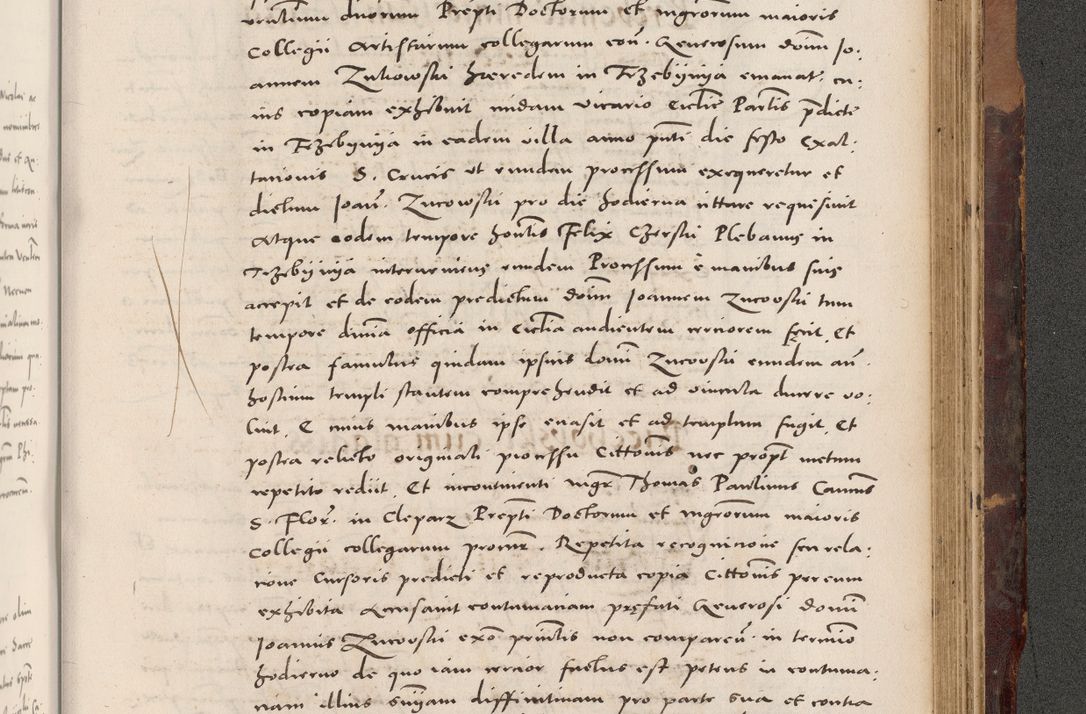 duorum Prepti Doctorum et mgrorum maioris
Collegii Artistarum collegarum con. Generosum domi Jo:
annem Zukowski hæredem in Trzebijnija emanat. cu:
ius copiam exhibuit cuidam vicario Ecclie Partis pdicte
in Trzebijnija in eadem villa anno pnti die festo Exal:
tationis S. Crucis ut eundem processum exequeretur et
dictum Joan. Zucowski pro die hodierna cittare requisivit
Atque eodem tempore hontis Felix Czerski Plebanus in
Trzebijnija interveniens eundem Processum e manibus suis
accepit et de eodem predictum domi Joannem Zucowski tum
tempore divina officia in Ecclia audientem certiorem fecit. Et
postea famulus quidam ipsius domi Zucowski eundem an
hostium templi stantem comprehendit et ad vincula ducere vo:
luit. E cuius manibus ipse evasit et ad templum fugit. Et
postea relicto originali processu Cittonis nec propt metum
repetito rediit. Et incontinenti mgr Thomas Paulinus Canus
S. Flor. in Cleparz Prepti Doctorum et mgrorum maioris
Collegii collegarum procur. Repetita recognicione seu rela:
cione Cursoris predicti et reproducta copia Cittonis per eum
exhibita Accusavit contumaciam prefati Generosi domi
Joannis Zucowski exo printis non comparen. in termio
hodierno de quo iam certior factus est petens in contuma:
ciam illius sniam diffinitivam pro parte sua et contra